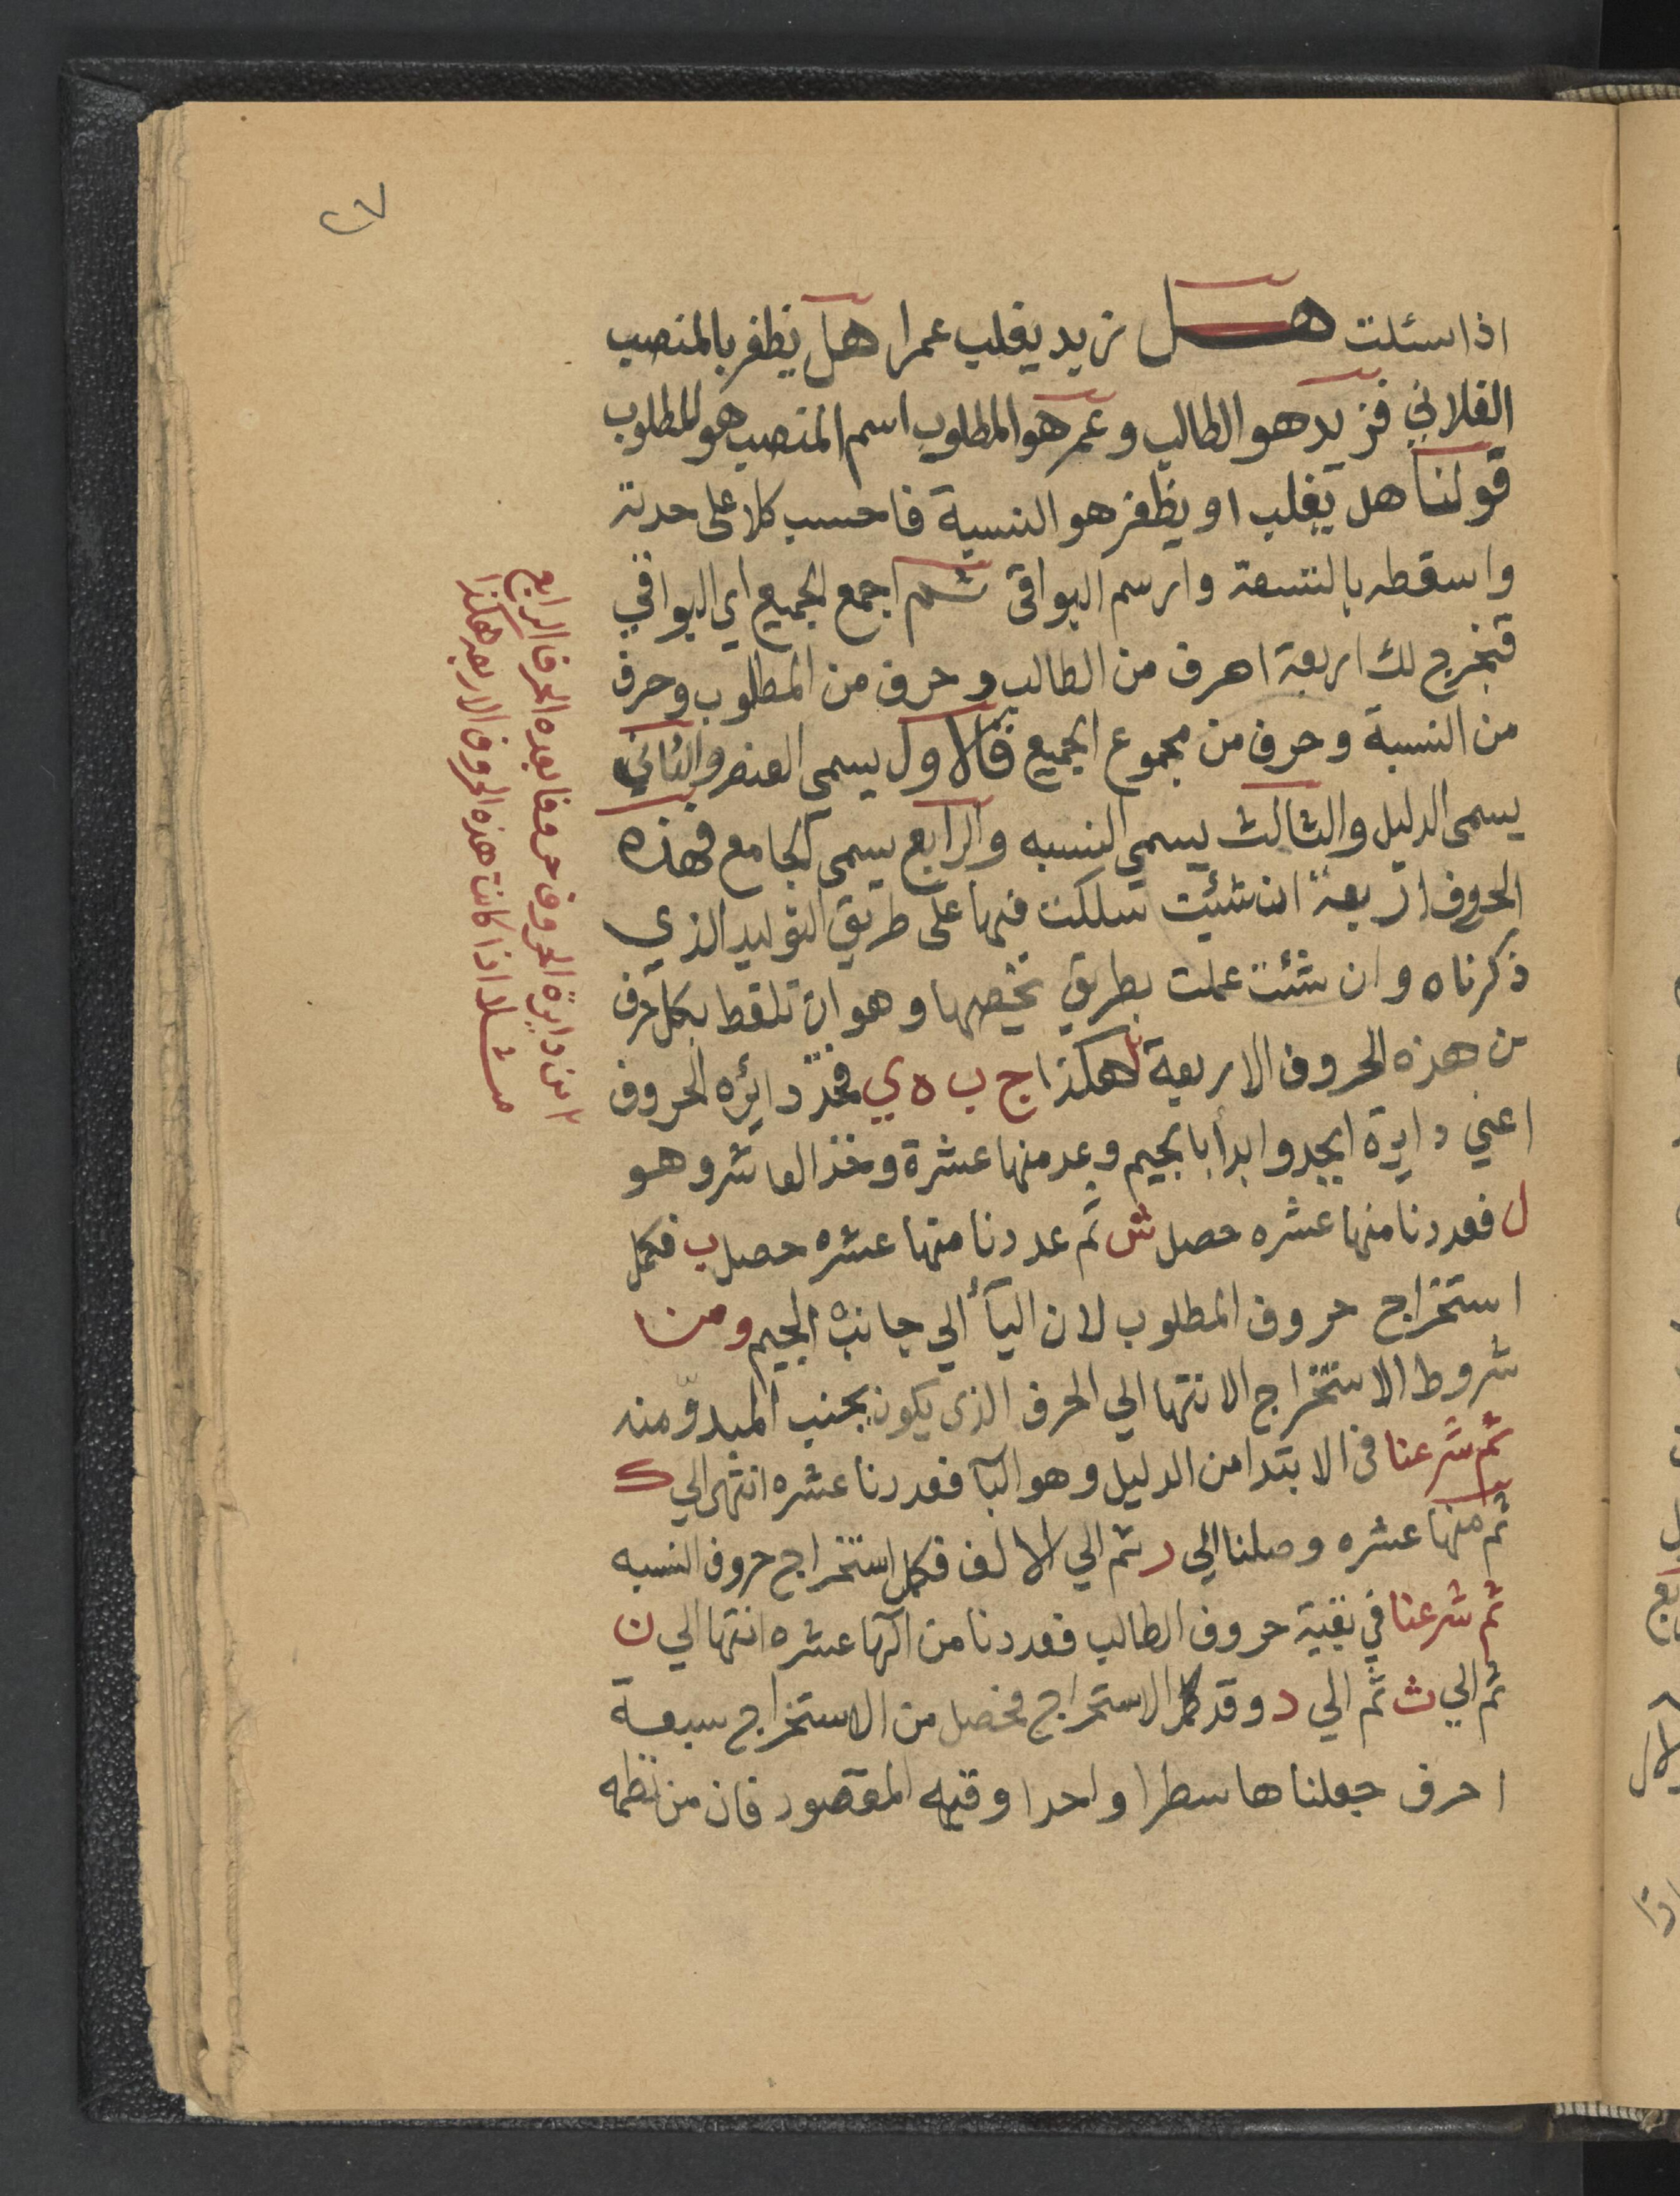 ٢٧
اذا سئلت هل زيد يغلب عمرا هل يظفر بالمنصب
الفلاني فزيد هو الطالب وعمر هو المطلوب اسم المنصب هو المطلوب
قولنا هل يغلب او يظفر هو النسبة فاحسب كلا على حدته
واسقطه بالتسعة وارسم البواقى ثم اجمع الجميع اي البواقي
فيخرج لك اربعة احرف من الطالب وحرف من المطلوب وحرف
من النسبة وحرف من مجموع الجميع فالاول يسمي العنصر والثاني
يسمى الدليل والثالث يسمي النسبه والرابع يسمى الجامع فهذه
الحروف اربعة ان شئيت سلكت فيها على طريق التوليد الذي
ذكرناه وان شئت عملت بطريق تخصها وهو ان تلقط بكل حرف
من هذه الحروف الاربعة هكذا ج ب ه ي فخذ دائره الحروف
اعني دايرة ابجد وابدأ بالجيم وعد منها عشرة وخذ العاشر وهو
ل فعددنا منها عشره حصل ش ثم عددنا منها عشره حصل ب فكمل
استخراج حروف المطلوب لان اليآ الي جانب الجيم ومن
شروط الاستخراج الانتها الي الحرف الذى يكون بجنب المبدوّ منه
ثم شرعنا فى الابتدا من الدليل وهو البآ فعددنا عشره انتهى الي ك
ثم منها عشره وصلنا الي ر ثم الي الالف فكمل استخراج حروف النسبه
ثم شرعنا في بقية حروف الطالب فعددنا من الها عشره انتها الي ن
ثم الي ث ثم الي د وقد كمل الاستخراج فحصل من الاستخراج سبعة
احرف جعلناها سطرا واحدا وفيه المقصود فان من نظمه
ابن دايرة الحروف حرفا بعده الحرف الرابع
مثلا اذا كانت هذه الحروف الاربعه هكذا